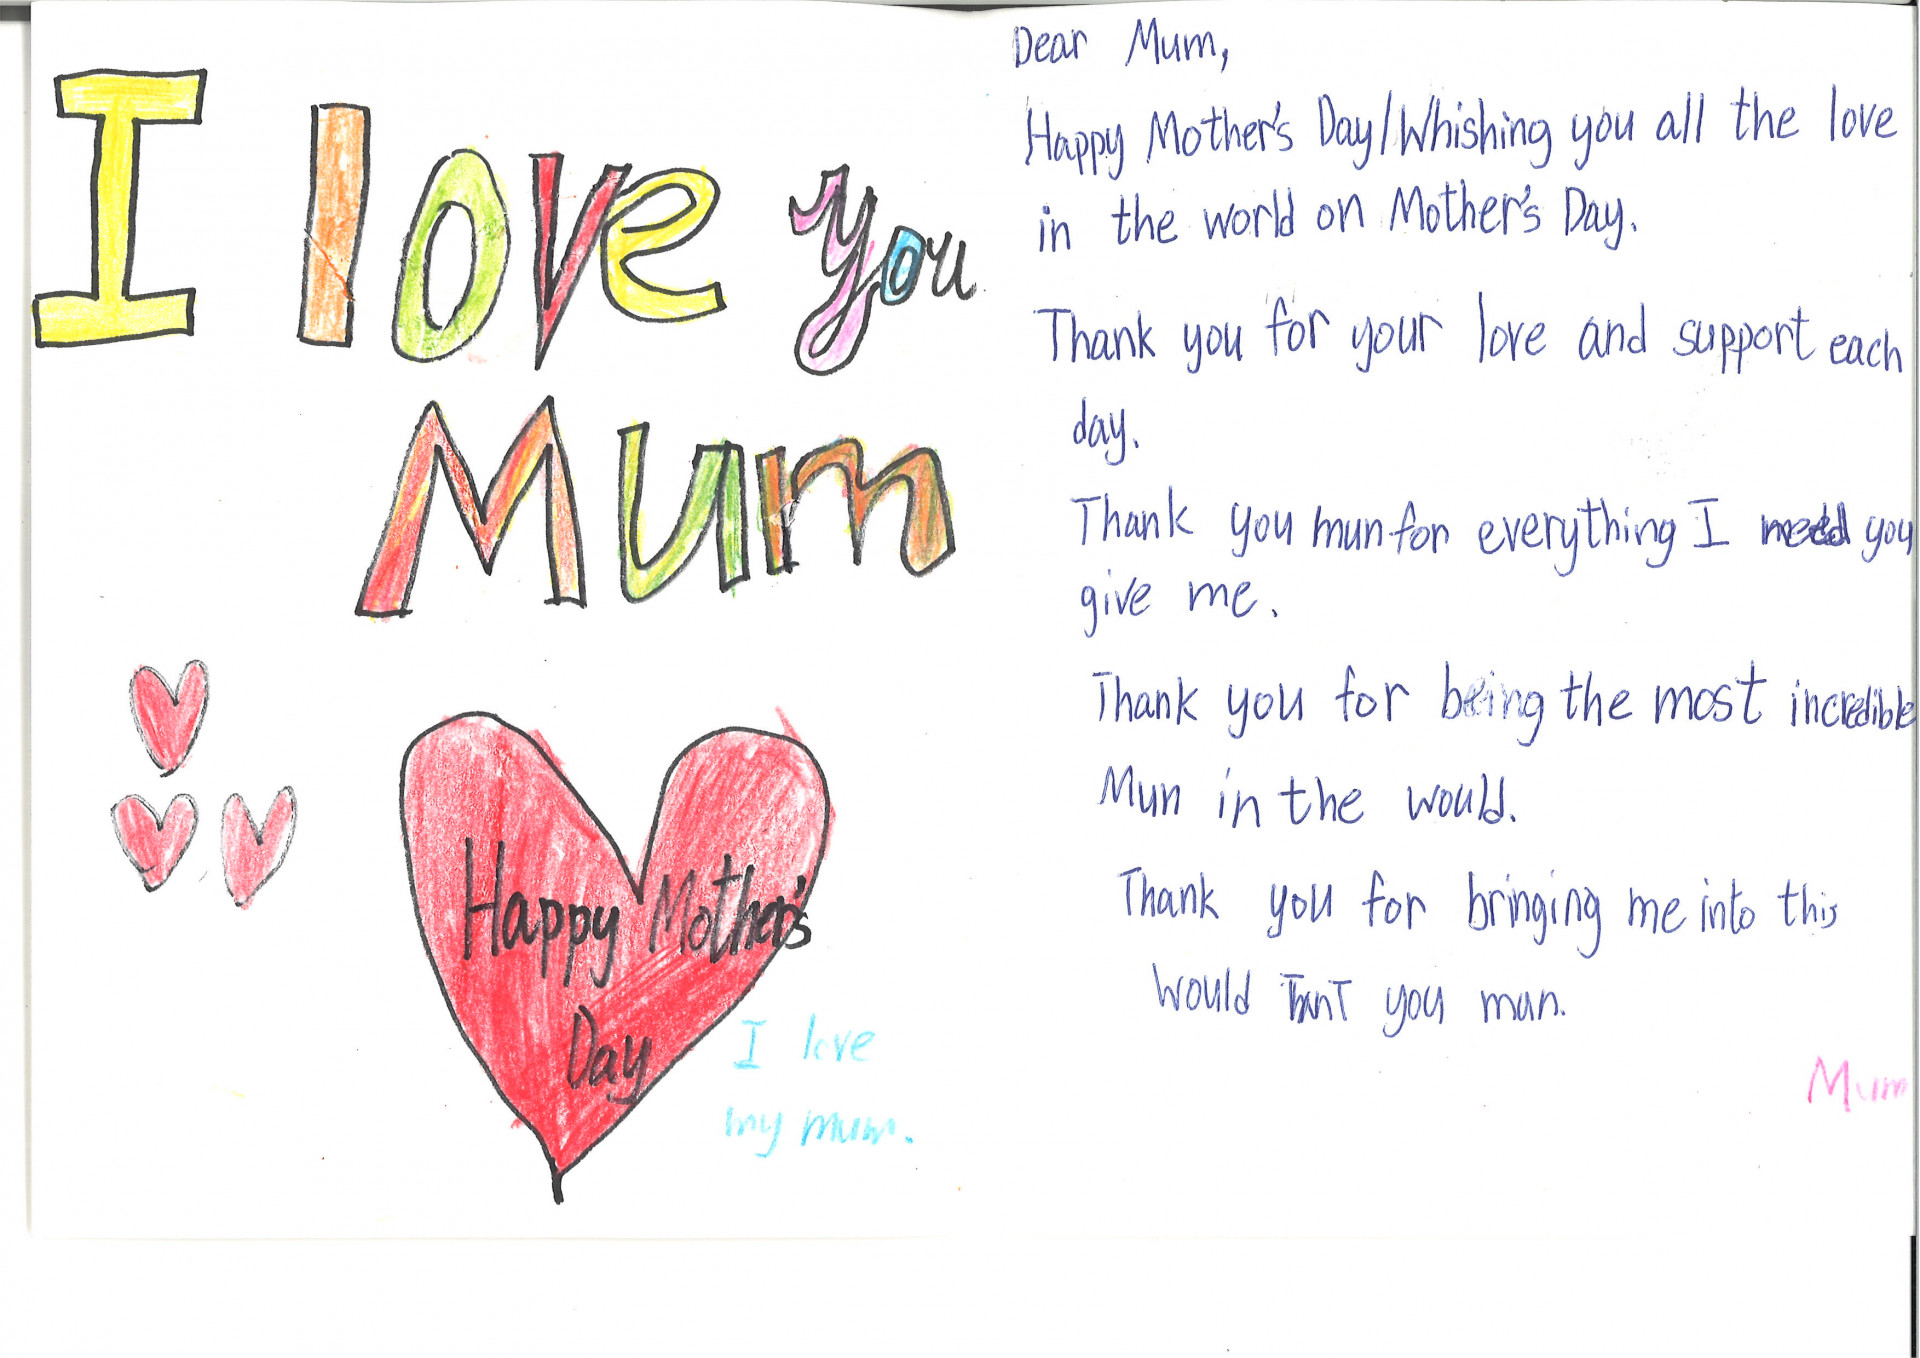 I love you
Mum
Happy Mother's
Day
I love
my mum.
Dear Mum,
Happy Mother's Day/Whishing you all the love
in the world on Mother's Day.
Thank you for your love and support each
day.
Thank you mun for everything I need you
give me.
Thank you for being the most incredible
Mun in the would.
Thank you for bringing me into this
would ThanT you mun.
Mum